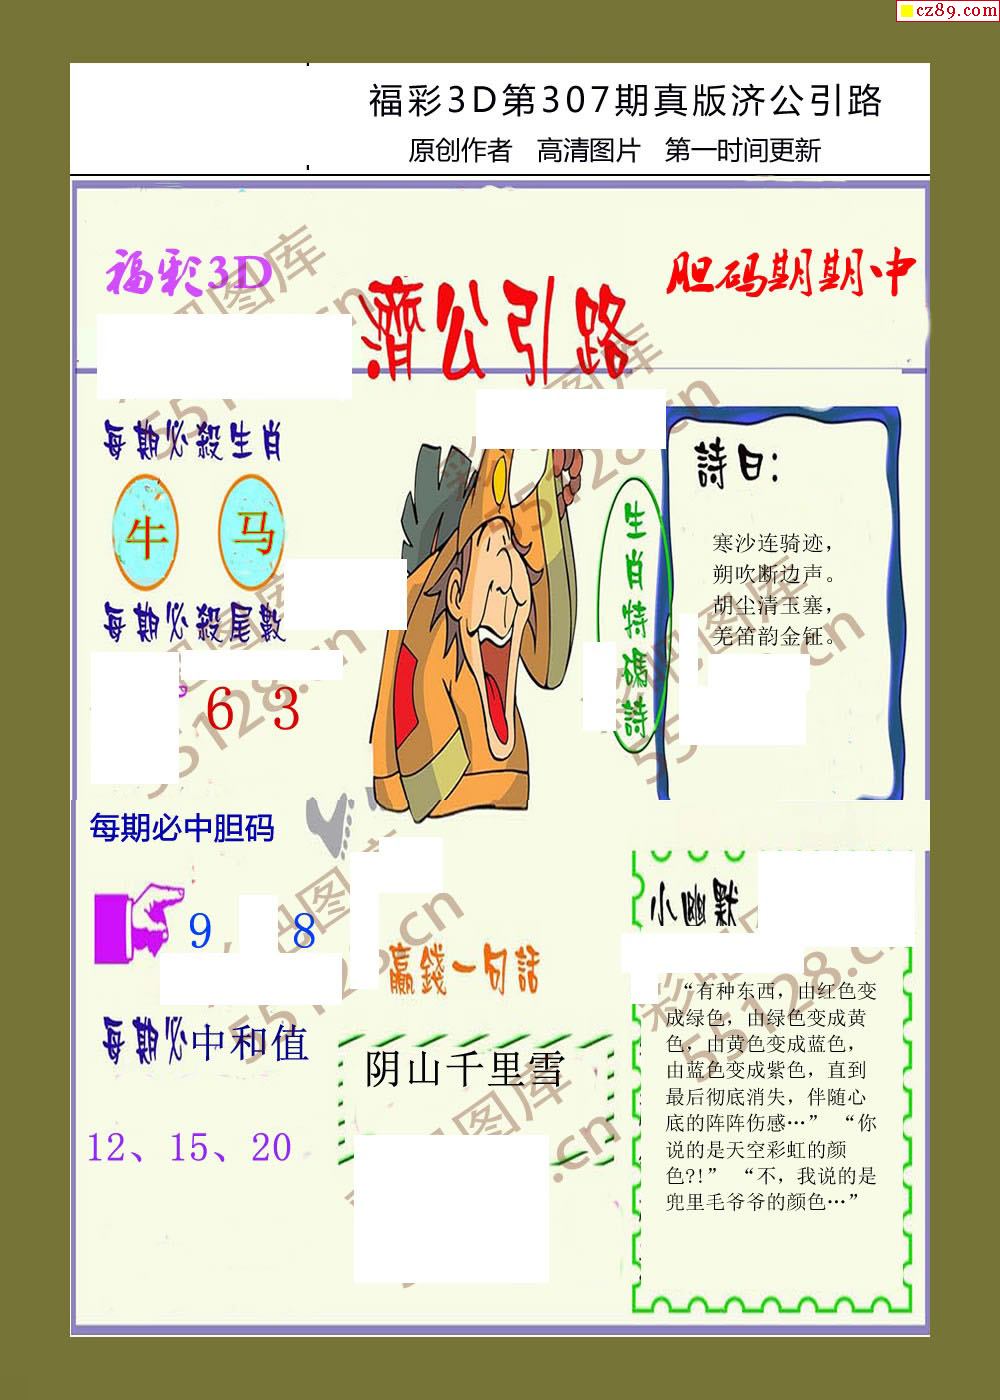 cz89.com
福彩3D第307期真版济公引路
原创作者 高清图片 第一时间更新
福彩3D
濟公引路
胆码期期中
每期必殺生肖
牛 马
每期必殺尾數
6 3
生肖特碼詩
詩曰：
寒沙连骑迹，
朔吹断边声。
胡尘清玉塞，
羌笛韵金钲。
每期必中胆码
9 8
每期必中和值
12、15、20
贏錢一句話
阴山千里雪
小幽默
“有种东西，由红色变
成绿色，由绿色变成黄
色，由黄色变成蓝色，
由蓝色变成紫色，直到
最后彻底消失，伴随心
底的阵阵伤感…” “你
说的是天空彩虹的颜
色?!” “不，我说的是
兜里毛爷爷的颜色…”
彩吧图库
55128.cn